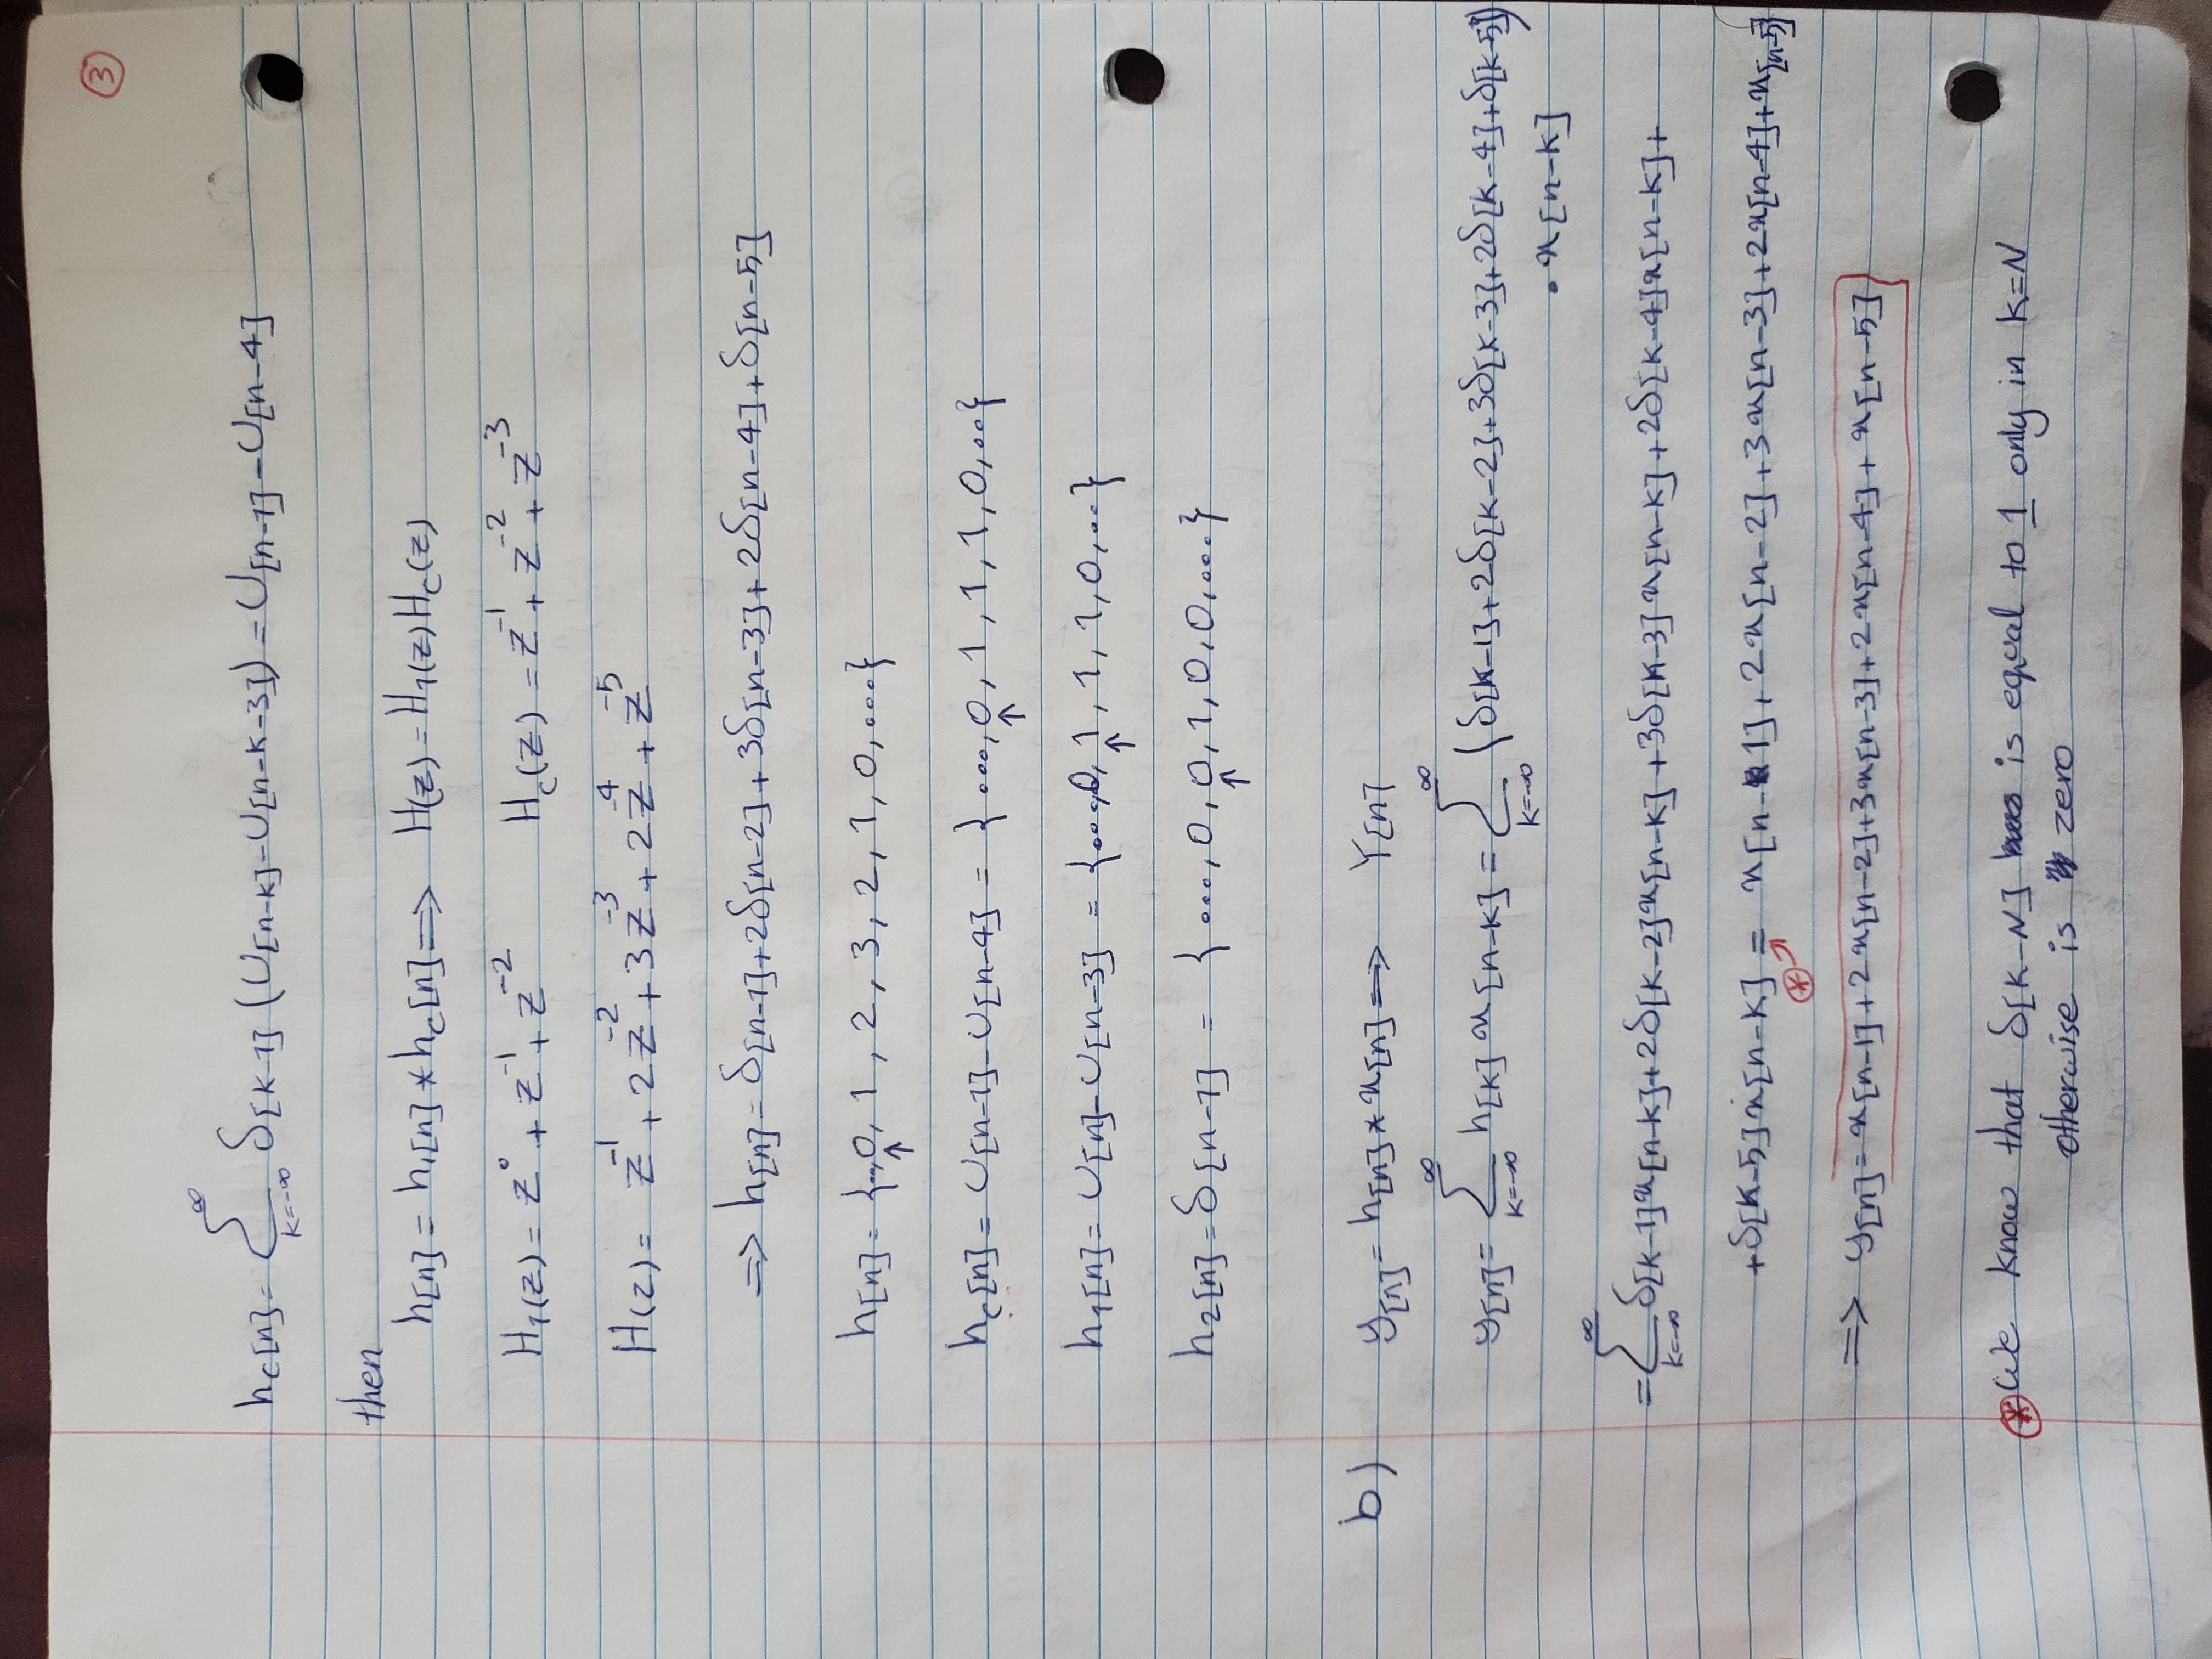 ③
hc[n] = Σ_{k=-∞}^{∞} δ[k-1] (U[n-k]-U[n-k-3]) = U[n-1]-U[n-4]
then
h[n] = h₁[n] * hc[n] ⟹ H(z) = H₁(z)Hc(z)
H₁(z) = z⁰ + z⁻¹ + z⁻² Hc(z) = z⁻¹ + z⁻² + z⁻³
H(z) = z⁻¹ + 2z⁻² + 3z⁻³ + 2z⁻⁴ + z⁻⁵
⟹ h[n] = δ[n-1]+2δ[n-2]+3δ[n-3]+2δ[n-4]+δ[n-5]
h[n] = {..,0,1,2,3,2,1,0,...}
↑
hc[n] = U[n-1]-U[n-4] = {...,0,1,1,1,0,..}
↑
h₁[n] = U[n]-U[n-3] = {...,0,1,1,1,0,...}
↑
h₂[n] = δ[n-1] = {...,0,0,1,0,0,...}
↑
b) y[n] = h[n] * x[n] ⟹ Y[n]
y[n] = Σ_{k=-∞}^{∞} h[k] x[n-k] = Σ_{k=-∞}^{∞} (δ[k-1]+2δ[k-2]+3δ[k-3]+2δ[k-4]+δ[k-5])
· x[n-k]
= Σ_{k=-∞}^{∞} δ[k-1]x[n-k]+2δ[k-2]x[n-k]+3δ[k-3]x[n-k]+2δ[k-4]x[n-k]+
+δ[k-5]x[n-k] = x[n-1]+2x[n-2]+3x[n-3]+2x[n-4]+x[n-5]
⊛
⟹ y[n] = x[n-1]+2x[n-2]+3x[n-3]+2x[n-4]+x[n-5]
⊛ We know that δ[k-N] is equal to 1 only in k=N
otherwise is zero